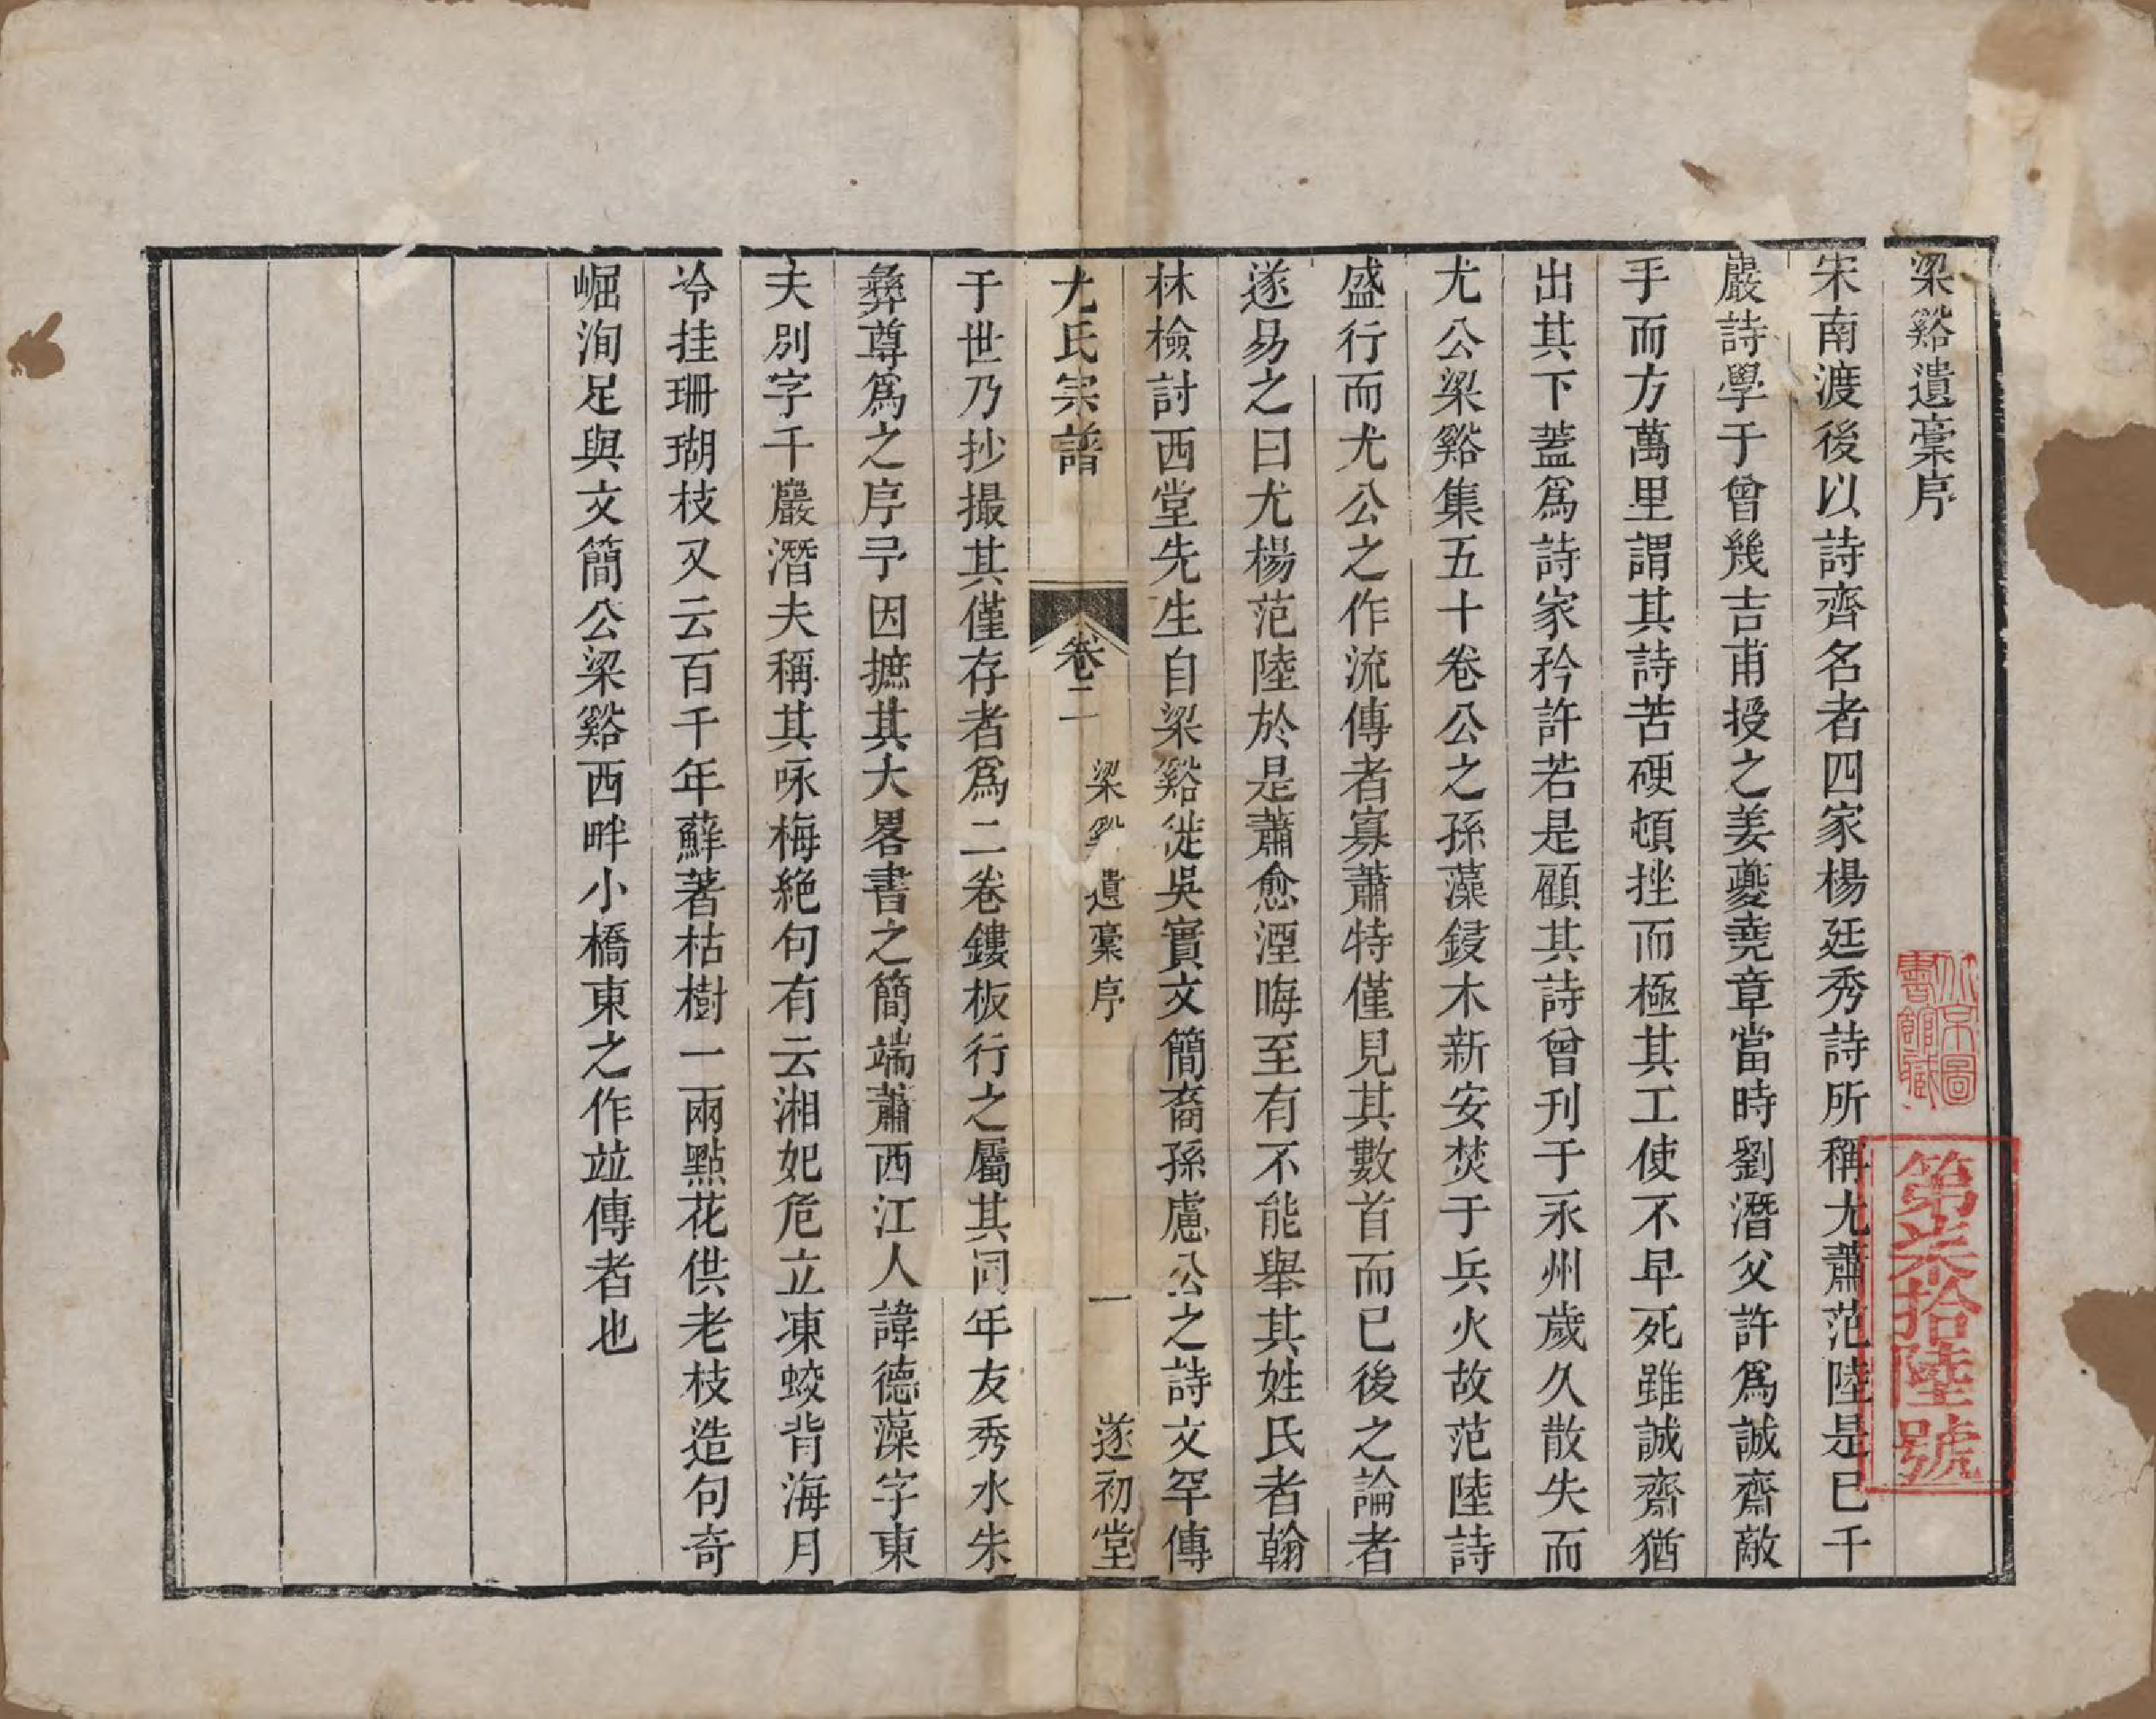 梁谿遺稾序
宋南渡後以詩齊名者四家楊廷秀詩所稱尤蕭范陸是已千
巖詩學于曾幾吉甫授之姜夔堯章當時劉潛父許爲誠齋敵
手而方萬里謂其詩苦硬頓挫而極其工使不早死雖誠齋猶
出其下蓋爲詩家矜許若是顧其詩曾刊于永州歲久散失而
尤公梁谿集五十卷公之孫藻鋟木新安焚于兵火故范陸詩
盛行而尤公之作流傳者寡蕭特僅見其數首而已後之論者
遂易之曰尤楊范陸於是蕭愈湮晦至有不能舉其姓氏者翰
林檢討西堂先生自梁谿徙吳實文簡裔孫慮公之詩文罕傳
尤氏宗譜 卷二 梁谿遺稾序 一 遂初堂
于世乃抄撮其僅存者爲二卷鏤板行之屬其同年友秀水朱
彝尊爲之序予因摭其大畧書之簡端蕭西江人諱德藻字東
夫別字千巖潛夫稱其咏梅絶句有云湘妃危立凍蛟背海月
冷挂珊瑚枝又云百千年蘚著枯樹一兩點花供老枝造句奇
崛洵足與文簡公梁谿西畔小橋東之作竝傳者也
北京圖
書館藏
第柒拾陸號